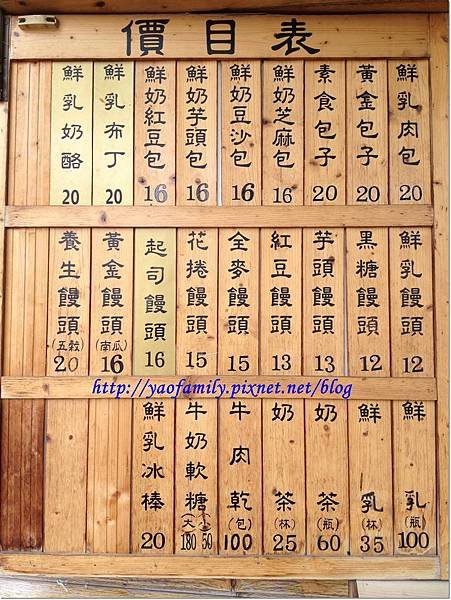 價目表
鮮乳肉包 20
黃金包子 20
素食包子 20
鮮奶芝麻包 16
鮮奶豆沙包 16
鮮奶芋頭包 16
鮮奶紅豆包 16
鮮乳布丁 20
鮮乳奶酪 20
鮮乳饅頭 12
黑糖饅頭 12
芋頭饅頭 13
紅豆饅頭 13
全麥饅頭 15
花捲饅頭 15
起司饅頭 16
黃金饅頭(南瓜) 16
養生饅頭(五穀) 20
http://yaofamily.pixnet.net/blog
鮮乳(瓶) 100
鮮乳(杯) 35
奶茶(瓶) 60
奶茶(杯) 25
牛肉乾(包) 100
牛奶軟糖(大)180 (小)50
鮮乳冰棒 20